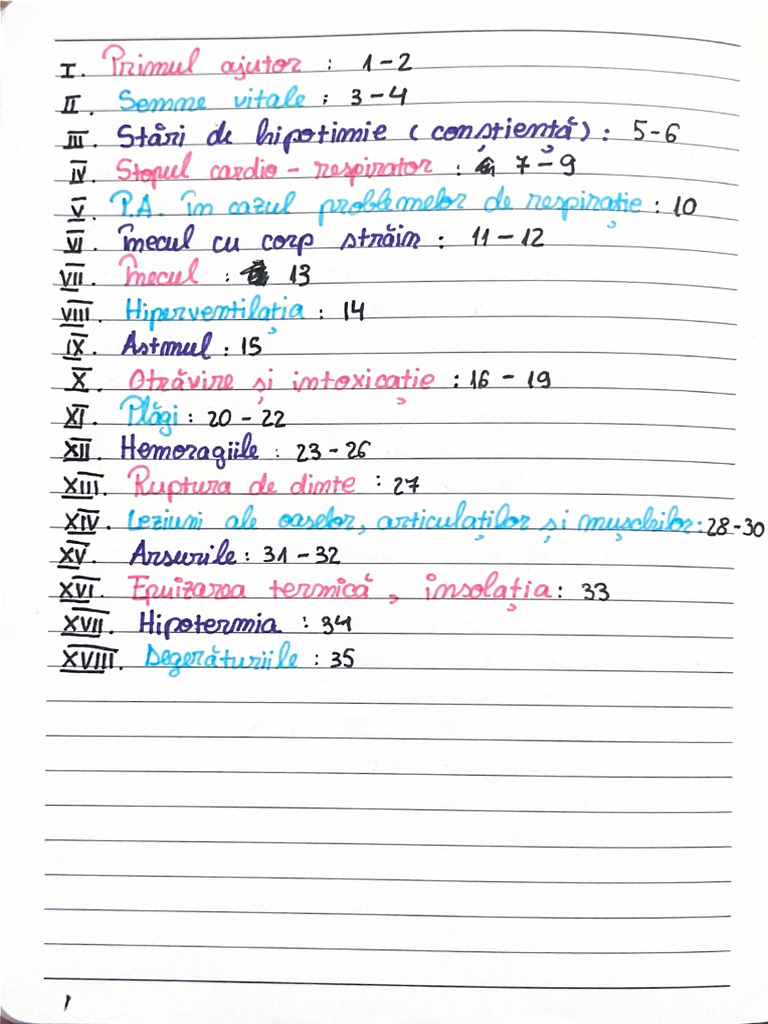 I. Primul ajutor : 1-2
II. Semne vitale : 3-4
III. Stări de hipotimie (conștiență) : 5-6
IV. Stopul cardio-respirator : 7-9
V. P.A. în cazul problemelor de respirație : 10
VI. Înecul cu corp străin : 11-12
VII. Înecul : 13
VIII. Hiperventilația : 14
IX. Astmul : 15
X. Otrăvire și intoxicație : 16 - 19
XI. Plăgi : 20-22
XII. Hemoragiile : 23-26
XIII. Ruptura de dinte : 27
XIV. Leziuni ale oaselor, articulațiilor și mușchilor : 28-30
XV. Arsurile : 31-32
XVI. Epuizarea termică, insolația : 33
XVII. Hipotermia : 34
XVIII. Degerăturiile : 35